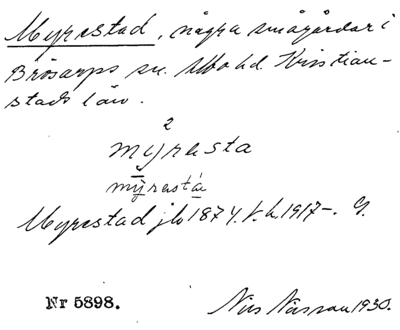 Myrestad, några smågårdar i
Brösarps sn. Albo hd. Kristian-
stads län.
2
myrasta
mȳrastá
Myrestad jb 1874. k. h. 1917-. G.
Nr 5898. Nils Nässan 1930.